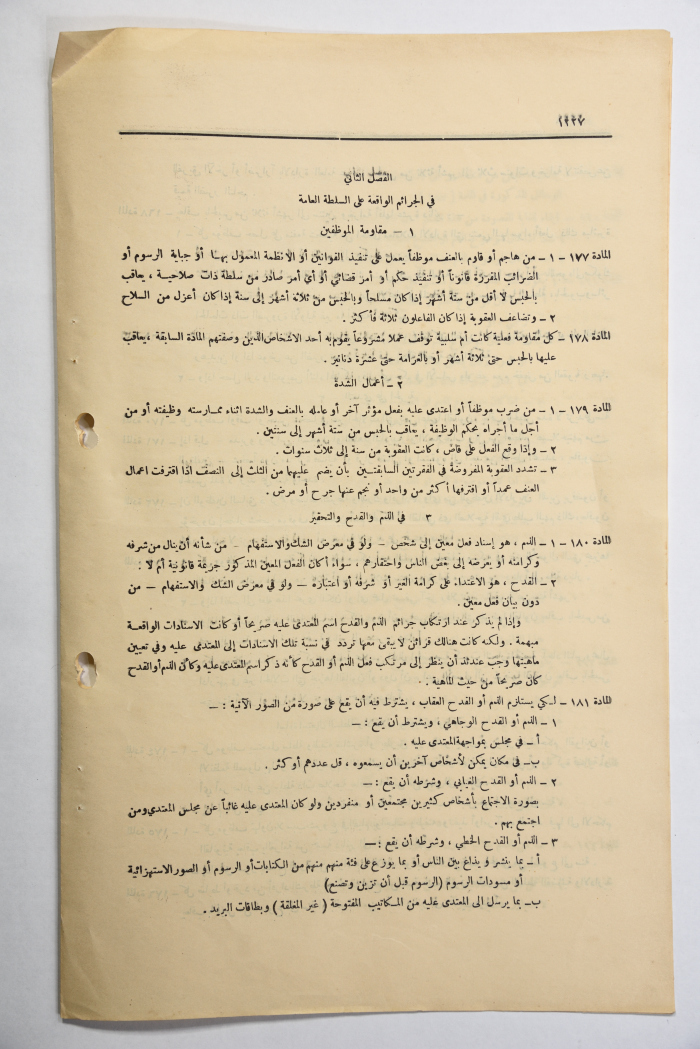 ١٢٢٧
الفصل الثاني
في الجرائم الواقعة على السلطة العامة
١ - مقاومة الموظفين
المادة ١٧٧ - ١ - من هاجم أو قاوم بالعنف موظفاً يعمل على تنفيذ القوانين أو الانظمة المعمول بهـا أو جباية الرسوم أو
الضرائب المقررة قانوناً أو تنفيذ حكم أو أمر قضائي أو أي أمر صادر من سلطة ذات صلاحية ، يعاقب
بالحبس لا أقل من ستة أشهر إذا كان مسلحاً وبالحبس من ثلاثة أشهر إلى سنة إذا كان أعزل من السلاح
٢ - وتضاعف العقوبة إذا كان الفاعلون ثلاثة فأكثر .
المادة ١٧٨ - كل مقاومة فعلية كانت أم سلبية توقف عملا مشروعاً يقوم به أحد الاشخاص الذين وصفتهم المادة السابقة ، يعاقب
عليها بالحبس حتى ثلاثة أشهر أو بالغرامة حتى عشرة دنانير .
٢ - أعمال الشدة
المادة ١٧٩ - ١ - من ضرب موظفاً أو اعتدى عليه بفعل مؤثر آخر أو عامله بالعنف والشدة اثناء ممارسته وظيفته أو من
أجل ما أجراه بحكم الوظيفة ، يعاقب بالحبس من ستة أشهر إلى سنتين .
٢ - وإذا وقع الفعل على قاض ، كانت العقوبة من سنة إلى ثلاث سنوات .
٣ - تشدد العقوبة المفروضة في الفقرتين السابقتـين بأن يضم عليهما من الثلث إلى النصف اذا اقترفت اعمال
العنف عمداً أو اقترفها أكثر من واحد أو نجم عنها جرح أو مرض .
٣ في الذم والقدح والتحقير
المادة ١٨٠ - ١ - الذم ، هو إسناد فعل معين إلى شخص - ولو في معرض الشك والاستفهام - من شأنه أن ينال من شرفه
وكرامته أو يعرضه إلى بغض الناس واحتقارهم ، سواء أكان الفعل المعين المذكور جريمة قانونية أم لا .
٢ - القدح ، هو الاعتداء على كرامة الغير أو شرفه أو اعتباره - ولو في معرض الشك والاستفهام - من
دون بيان فعل معين .
وإذا لم يذكر عند ارتكاب جرائم الذم والقدح اسم المعتدى عليه صريحاً أو كانت الاسنادات الواقعـة
مبهمة . ولكنه كانت هنالك قرائن لا يبقى معها تردد في نسبة تلك الاسنادات إلى المعتدى عليه وفي تعيين
ماهيتها وجب عندئذ أن ينظر إلى مرتكب فعل الذم أو القدح كأنه ذكر اسم المعتدى عليه وكأن الذم أو القدح
كان صريحاً من حيث الماهية .
المادة ١٨١ - لـكي يستلزم الذم أو القدح العقاب ، يشترط فيه أن يقع على صورة من الصور الآتية : -
١ - الذم أو القدح الوجاهي ، ويشترط أن يقع : -
أ - في مجلس بمواجهة المعتدى عليه .
ب - في مكان يمكن لأشخاص آخرين أن يسمعوه ، قل عددهم أو كثر .
٢ - الذم أو القدح الغيابي ، وشرطه أن يقع : -
بصورة الاجتماع بأشخاص كثيرين مجتمعين أو منفردين ولو كان المعتدى عليه غائباً عن مجلس المعتدي ومن
اجتمع بهم .
٣ - الذم أو القدح الخطي ، وشرطه أن يقع : -
أ - بما ينشر و يذاع بين الناس أو بما يوزع على فئة منهم منهم من الكتابات أو الرسوم أو الصور الاستهزائية
أو مسودات الرسوم (الرسوم قبل أن تزين وتصنع)
ب - بما يرسل الى المعتدى عليه من المـكاتيب المفتوحة ( غير المغلقة ) وبطاقات البريد .